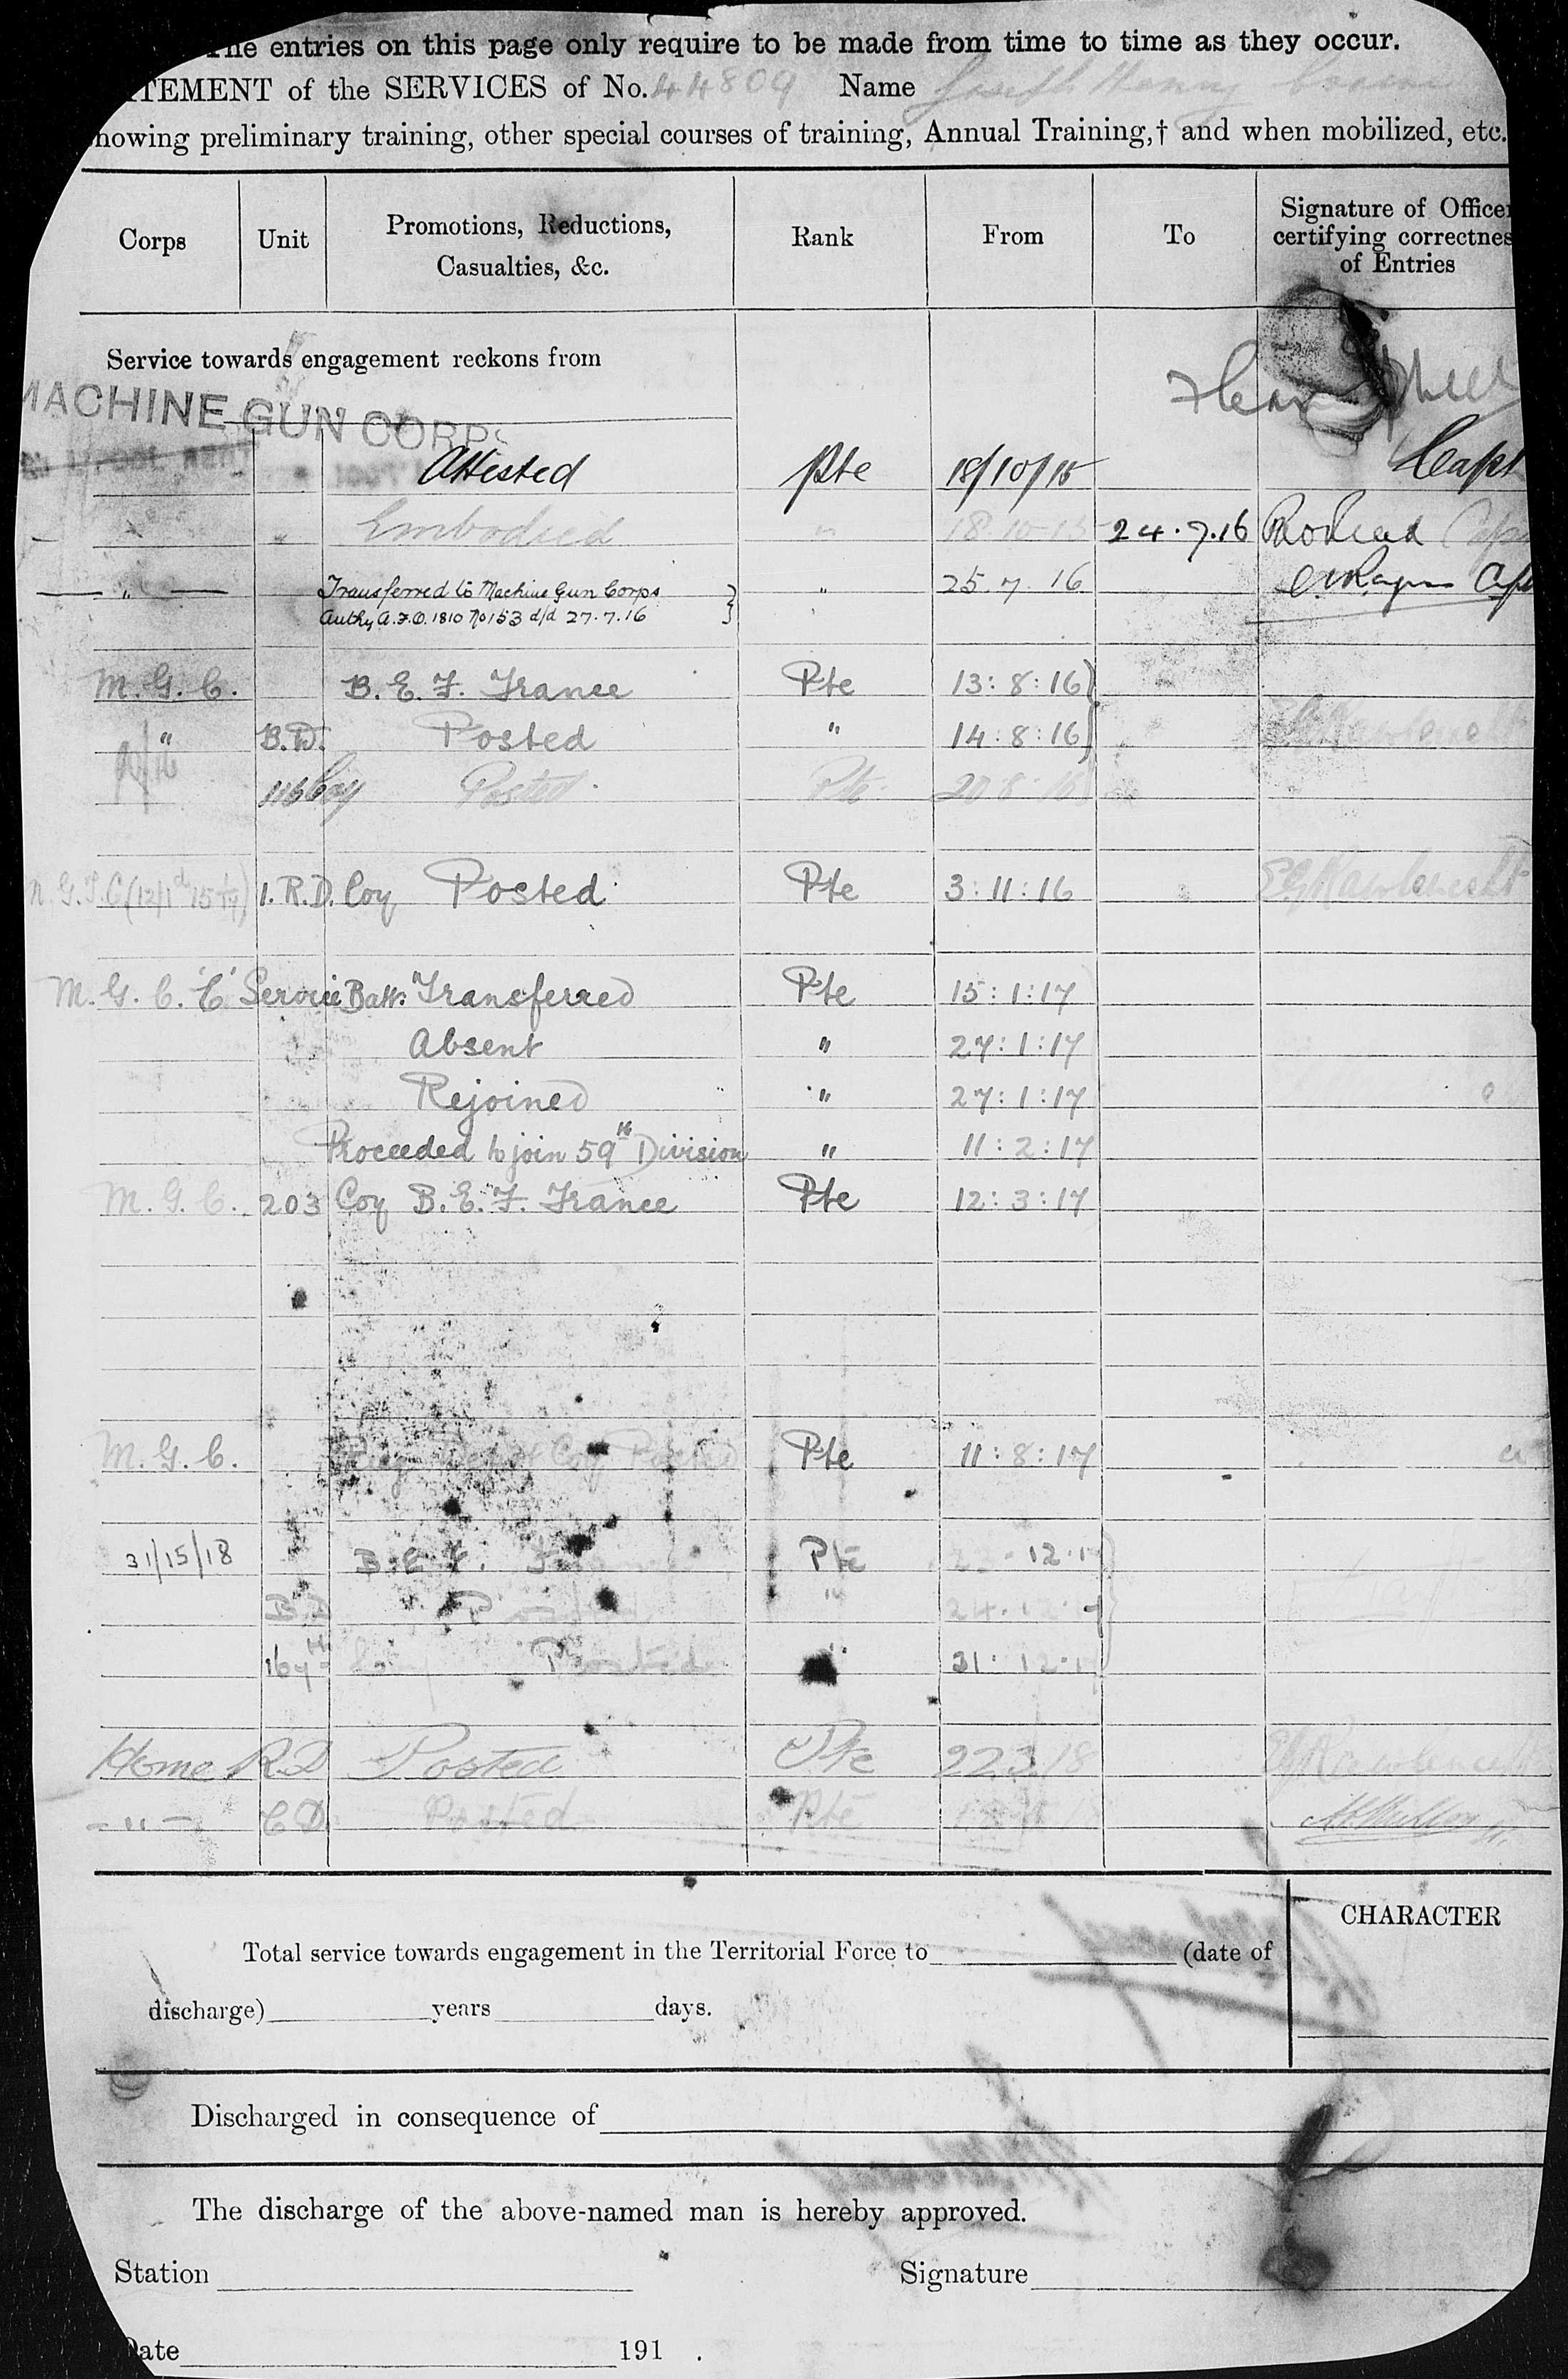 The entries on this page only require to be made from time to time as they occur.
TEMENT of the SERVICES of No. 44809 Name Joseph Henry
howing preliminary training, other special courses of training, Annual Training,† and when mobilized, etc.
Corps Unit Promotions, Reductions, Casualties, &c. Rank From To Signature of Officer certifying correctness of Entries
Service towards engagement reckons from
MACHINE GUN CORPS
Attested Pte 18/10/15 Capt
" Embodied " 18.10.15 24.7.16
" Transferred to Machine Gun Corps " 25.7.16 Capt
Authy A.F.O. 1810 No 153 d/d 27.7.16
M.G.C. B.E.F. France Pte 13:8:16
" B.D. Posted " 14:8:16
116 Coy Posted Pte 20 8 16
1.R.D. Coy Posted Pte 3:11:16
M.G.C. 'C' Service Battn Transferred Pte 15:1:17
Absent " 27:1:17
Rejoined " 27:1:17
Proceeded to join 59th Division " 11:2:17
M.G.C. 203 Coy B.E.F. France Pte 12:3:17
M.G.C. Depot Coy Posted Pte 11:8:17
31/15/18 B.E.F. Pte 12.1
B.D. " 24.12.
167th Posted " 31.12.1
Home R.D. Posted Pte 22.3.18
- " - C.D. Posted Pte
CHARACTER
Total service towards engagement in the Territorial Force to (date of
discharge) years days.
Discharged in consequence of
The discharge of the above-named man is hereby approved.
Station Signature
Date 191 .